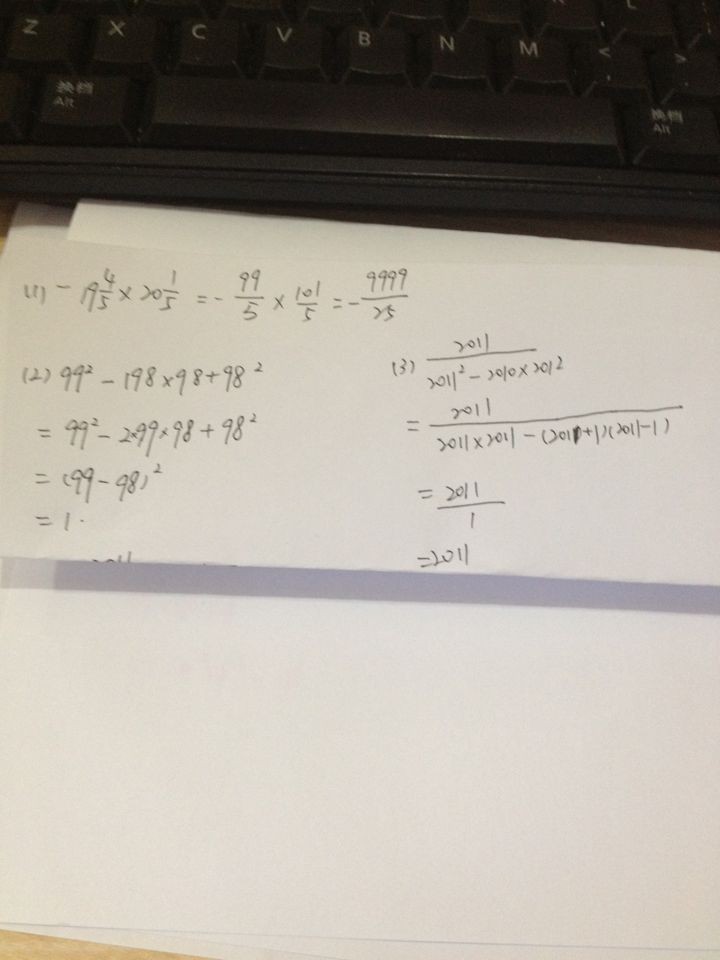 Z X C V B N M < >
换档 Alt
换档 Alt
(1) -19 4/5 × 20 1/5 = - 99/5 × 101/5 = - 9999/25
(2) 99² - 198×98 + 98²
= 99² - 2×99×98 + 98²
= (99 - 98)²
= 1.
(3) 2011/(2011² - 2010×2012)
= 2011/(2011×2011 - (2011+1)(2011-1))
= 2011/1
=2011